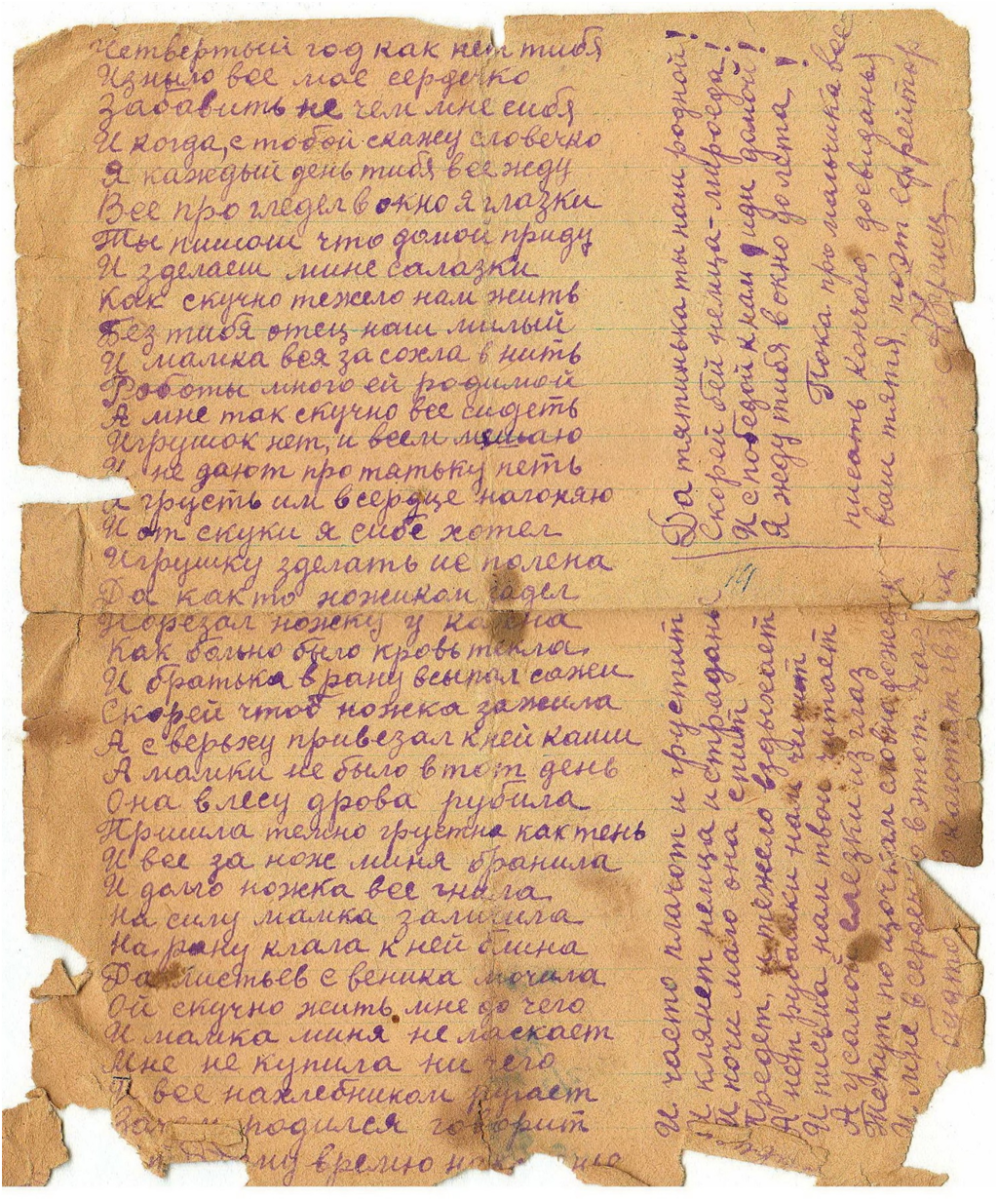 Четвертый год как нет тибя
Изныло все мае сердечко
Забавить не чем мне сибя
И когда, с тобой скажу словечко
Я каждый день тибя все жду
Все про гледел в окно я глазки
Ты пишош что домой приду
И зделаеш мине салазки
Как скучно тежело нам жить
Без тибя отец наш милый
И мамка вся засохла в нить
Роботы много ей родимой
А мне так скучно все сидеть
Игрушок нет, и всем мешаю
И не дают про тятьку петь
Я грусть им в сердце нагоняю
И от скуки я сибе хотел
Игрушку зделать ис полена
Да как то ножиком задел
Порезал ножку у калена
Как больно было кровь текла
И братька в рану всыпал сажи
Скорей чтоб ножка зажила
А с верьху привезал к ней каши
А мамки не было в тот день
Она в лесу дрова рубила
Пришла темно грустна как тень
И все за нож миня бранила
И долго ножка все гнила
На силу мамка заличила
На рану клала к ней блина
Да листьев с веника мочила
Ой скучно жить мне до чего
И мамка миня не ласкает
Мне не купила ни чего
И все нахлебником ругает
родился говорит
время
И часто плачот и грустит
И клянет немца и страдань
И ночи мало она спит
Предет, и тежело вздыхает
А нет рубашки нам чинит
И письма нам твои читает
А у самой слезки из глаз
Текут по щочькам словна дожжик
И мне всероено в этот час
будто
Да тятинька ты наш родной!
Скорей бей немца-мироеда!
И с победой к нам иди домой!
Я жду тибя в окно до лета!
Пока про мальчика все
писать кончаю, досвиданья
ваш тятя, поэт ефрейтор
14